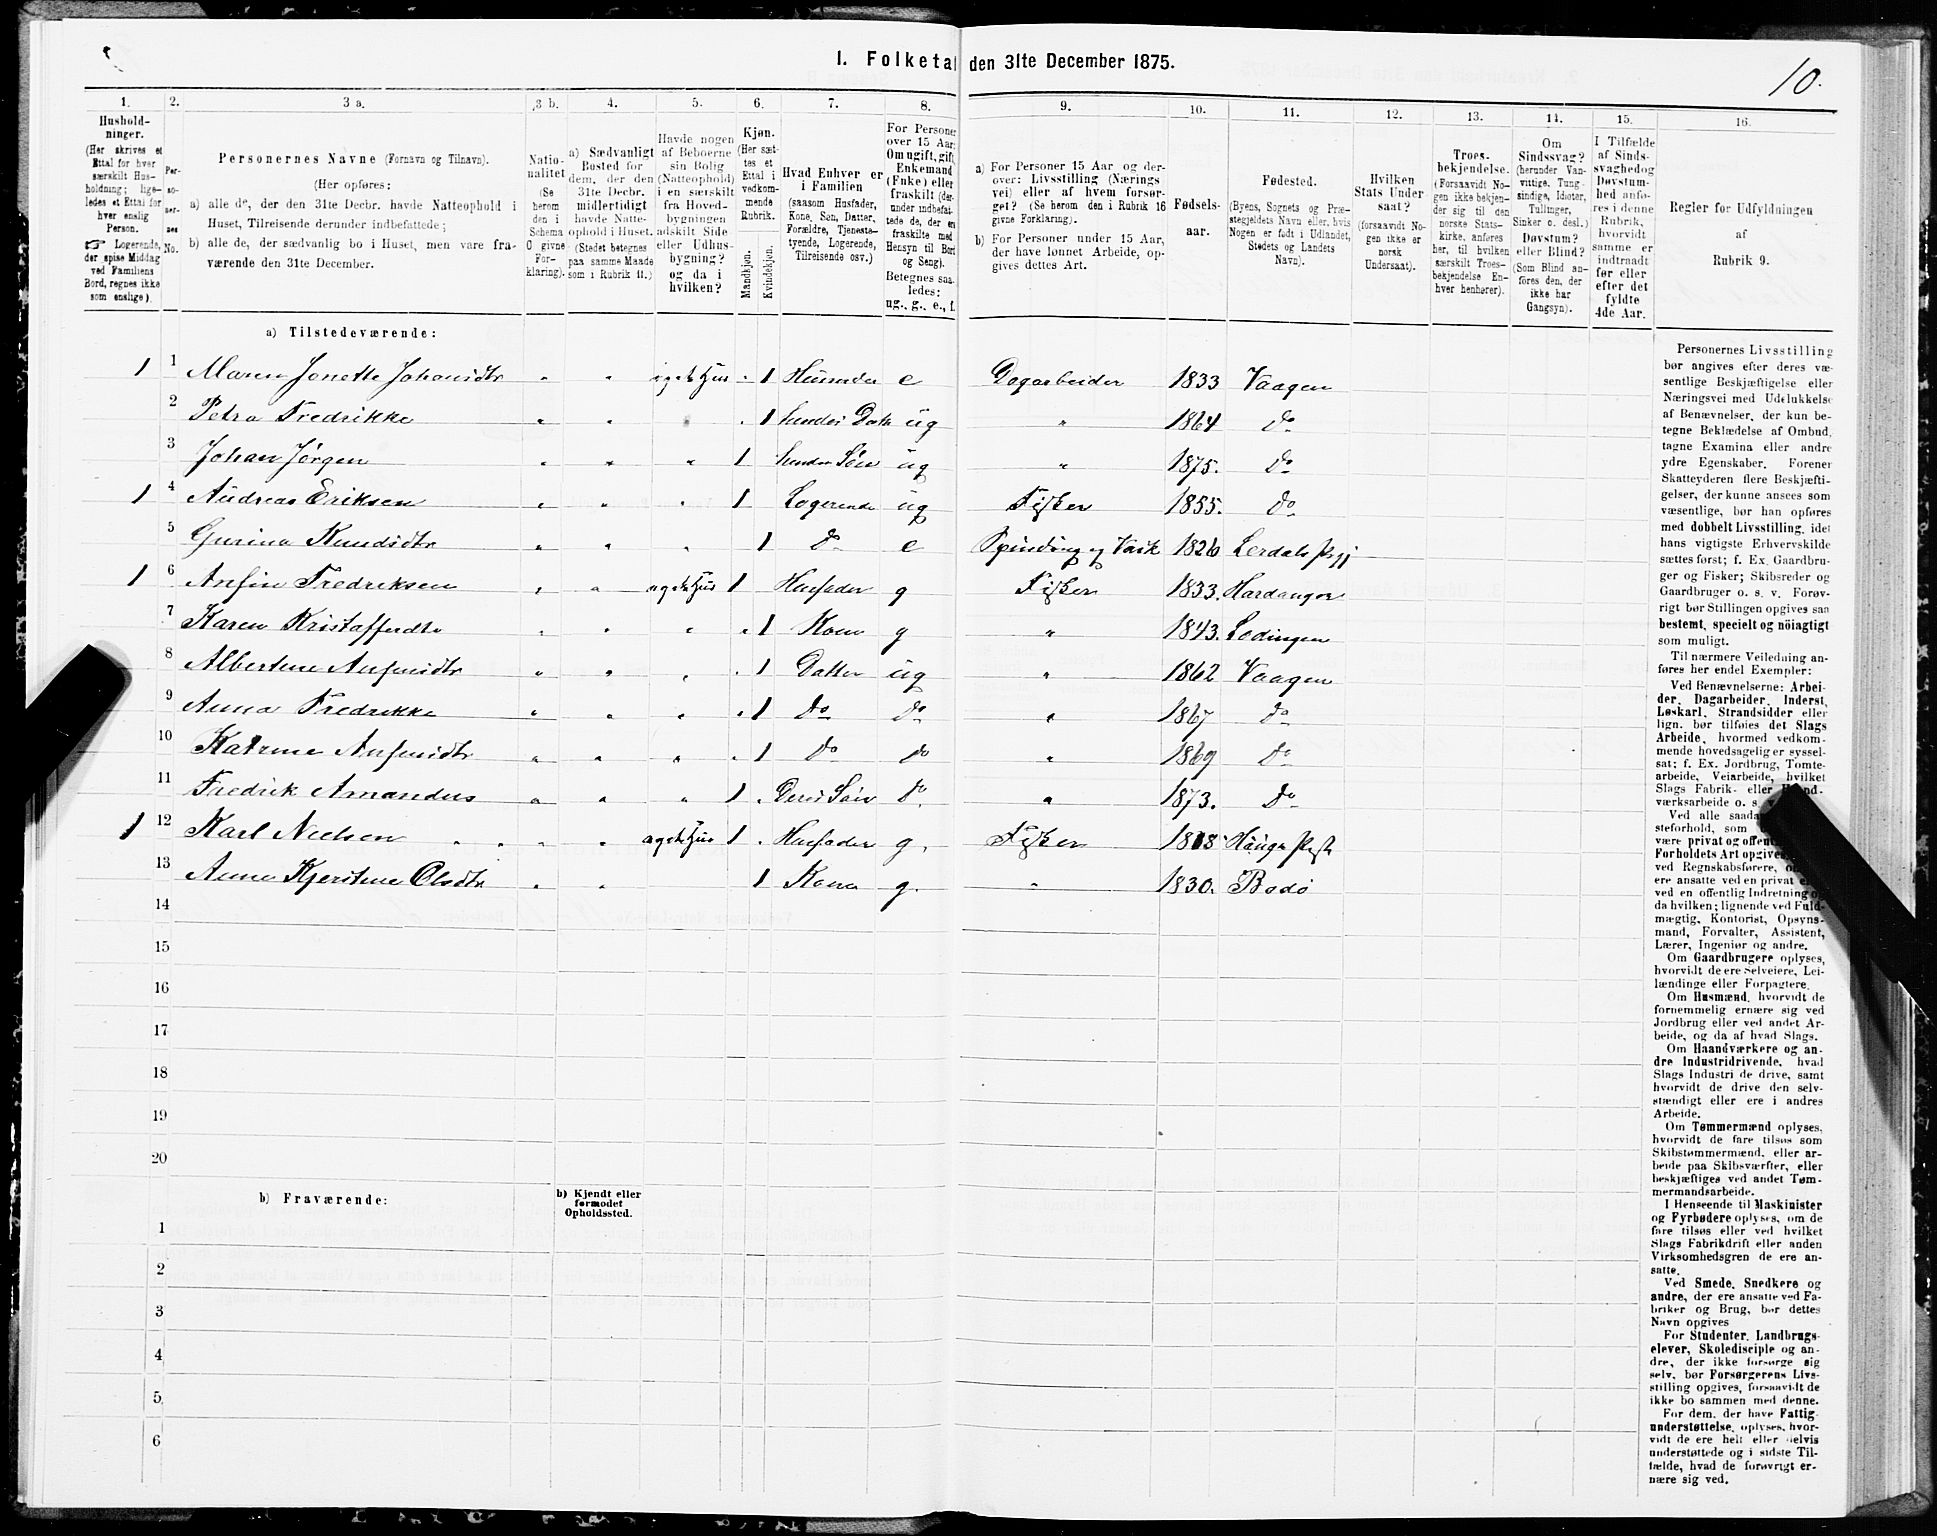 I. Folketal den 31te December 1875.
10.
1. 2. 3 a. 3 b. 4. 5. 6. 7. 8. 9. 10. 11. 12. 13. 14. 15. 16.
Hushold-
ninger.
(Her skrives et
Ettal for hver
særskilt Hus-
holdning; lige-
ledes et Ettal for
hver enslig
Person.
☞ Logerende,
der spise Middag
ved Familiens
Bord, regnes ikke
som enslige).
Per-
so-
ner-
nes
No.
Personernes Navne (Fornavn og Tilnavn).
(Her opføres:
a) alle de, der den 31te Decbr. havde Natteophold i
Huset, Tilreisende derunder indbefattede;
b) alle de, der sædvanlig bo i Huset, men vare fra-
værende den 31te December.
Natio-
nalitet
(Se
herom
den i
Schema
O givne
For-
klaring).
a) Sædvanligt
Bosted for
dem, der den
31te Decbr.
midlertidigt
havde Natte-
ophold i Huset.
(Stedet betegnes
paa samme Maade
som i Rubrik 11.)
Havde nogen
af Beboerne
sin Bolig
(Natteophold)
i en særskilt
fra Hoved-
bygningen
adskilt Side-
eller Udhus-
bygning?
og da i
hvilken?
Kjøn.
(Her sæt-
tes et
Ettal i
vedkom-
mende
Rubrik.
Mandkjøn.
Kvindekjøn.
Hvad Enhver er
i Familien
(saasom Husfader,
Kone, Søn, Datter,
Forældre, Tjeneste-
tyende, Logerende,
Tilreisende osv.)
For Personer
over 15 Aar:
Om ugift, gift,
Enkemand
(Enke) eller
fraskilt (der-
under indbefat-
tede de, der er
fraskilte med
Hensyn til Bord
og Seng).
Betegnes saa-
ledes:
ug., g., e., f.
a) For Personer 15 Aar og der-
over: Livsstilling (Nærings-
vei) eller af hvem forsør-
get? (Se herom den i Rubrik 16
givne Forklaring).
b) For Personer under 15 Aar,
der have lønnet Arbeide, op-
gives dettes Art.
Fødsels-
aar.
Fødested.
(Byens, Sognets og Præ-
stegjeldets Navn eller, hvis
Nogen er født i Udlandet,
Stedets og Landets
Navn).
Hvilken
Stats Under-
saat?
(forsaavidt No-
gen ikke er
norsk
Undersaat).
Troes-
bekjendelse.
(Forsaavidt No-
gen ikke bekjen-
der sig til den
norske Stats-
kirke, anføres
her, til hvilken
særskilt Troes-
bekjendelse En-
hver henhører).
Om
Sindssvag?
(herunder Van-
vittige, Tung-
sindige, Idioter,
Tullinger,
Sinker o. desl.)
Døvstum?
eller Blind?
(Som Blind an-
føres den, der
ikke har
Gangsyn).
I Tilfælde
af Sinds-
svaghed og
Døvstum-
hed anfø-
res i denne
Rubrik,
hvorvidt
samme er
indtraadt
før eller
efter det
fyldte
4de Aar.
Regler for Udfyldningen
af
Rubrik 9.
a) Tilstedeværende:
1 1 Maren Jonette Johanidtr " " 1 e Dagarbeider 1833 Vaagen
2 Petra Fredrikke " " 1 ug " 1864 do
3 Johan Jørgen " " " 1 ug " 1875. do
1 4 Andreas Eriksen " " " 1 Logerende ug Fisker 1855. do
5 Gurina Knudsdtr " " " 1 do e 1826
1 6 Anfin Fredriksen " " 1 Husfader g Fisker 1833. Hardanger
7 Karen Kristofferdtr " " " 1 Kone g " 1843. Lodingen
8 Albertine Anfinidtr " " " 1 Datter ug " 1862 Vaagen
9 Anna Fredrikke " " " 1 do do " 1867 do
10 Katrine Anfinidtr " " " 1 do do " 1869 do
11 Fredrik Amandus " " " 1 Deres Søn do " 1873. do
1 12 Karl Nielsen " " 1 Husfader g. Fisker
13 Anne Kjerstine Olsdtr " " 1 Kone g. " 1830. Bodø
14
15
16
17
18
19
20
b) Fraværende:
b) Kjendt eller
formodet
Opholdssted.
1
2
3
4
5
6
Personernes Livsstilling
bør angives efter deres væ-
sentlige Beskjæftigelse eller
Næringsvei med Udelukkelse
af Benævnelser, der kun be-
tegne Beklædelse af Ombud,
tagne Examina eller andre
ydre Egenskaber. Forener
Skatteyderen flere Beskjæfti-
gelser, der kunne ansees som
væsentlige, bør han opføres
med dobbelt Livsstilling, idet
hans vigtigste Erhvervskilde
sættes først; f. Ex. Gaardbru-
ger og Fisker; Skibsreder og
Gaardbruger o. s. v. Forøv-
rigt bør Stillingen opgives saa
bestemt, specielt og nöiagtigt
som muligt.
Til nærmere Veiledning an-
føres her endel Exempler:
Ved Benævnelserne: Arbei-
der, Dagarbeider, Inderst,
Løskarl, Strandsidder eller
lign. bør tilføies det Slags
Arbeide, hvormed vedkom-
mende hovedsagelig er syssel-
sat; f. Ex. Jordbrug, Tomte-
arbeide, Veiarbeide, hvilket
Slags Fabrik- eller Haand-
værksarbeide o. s. v.
Ved alle
steforhold, som
være privat og
Forholdets Art
ved Regnskabsførere,
ere ansatte ved en privat
ved en offentlig Indretning og
da hvilken; lignende ved Fuld-
mægtig, Kontorist, Opsyns-
mand, Forvalter, Assistent,
Lærer, Ingeniør og andre.
Om Gaardbrugere oplyses,
hvorvidt de ere Selveiere, Lei-
lændinge eller Forpagtere.
Om Husmænd, hvorvidt de
fornemmelig ernære sig ved
Jordbrug eller ved andet Ar-
beide, og da af hvad Slags.
Om Haandværkere og an-
dre Industridrivende, hvad
Slags Industri de drive, samt
hvorvidt de drive den selv-
stændigt eller ere i andres
Arbeide.
Om Tømmermænd oplyses,
hvorvidt de fare tilsøs som
Skibstømmermænd, eller ar-
beide paa Skibsværfter, eller
beskjæftiges ved andet Tøm-
mermandsarbeide.
I Henseende til Maskinister
og Fyrbødere oplyses, om de
fare tilsøs eller ved hvilket
Slags Fabrikdrift eller anden
Virksomhedsgren de ere an-
satte.
Ved Smede, Snedkere og
andre, der ere ansatte ved Fa-
briker og Brug, bør dettes
Navn opgives
For Studenter, Landbrugs-
elever, Skoledisciple og an-
dre, der ikke forsørge sig
selv, bør Forsørgerens Livs-
stilling opgives, forsaavidt de
ikke bo sammen med denne.
For dem, der have Fattig-
understøttelse, oplyses, hvor-
vidt de ere helt eller delvis
understøttede og i sidste Til-
fælde, hvad de forøvrigt er-
nære sig ved.